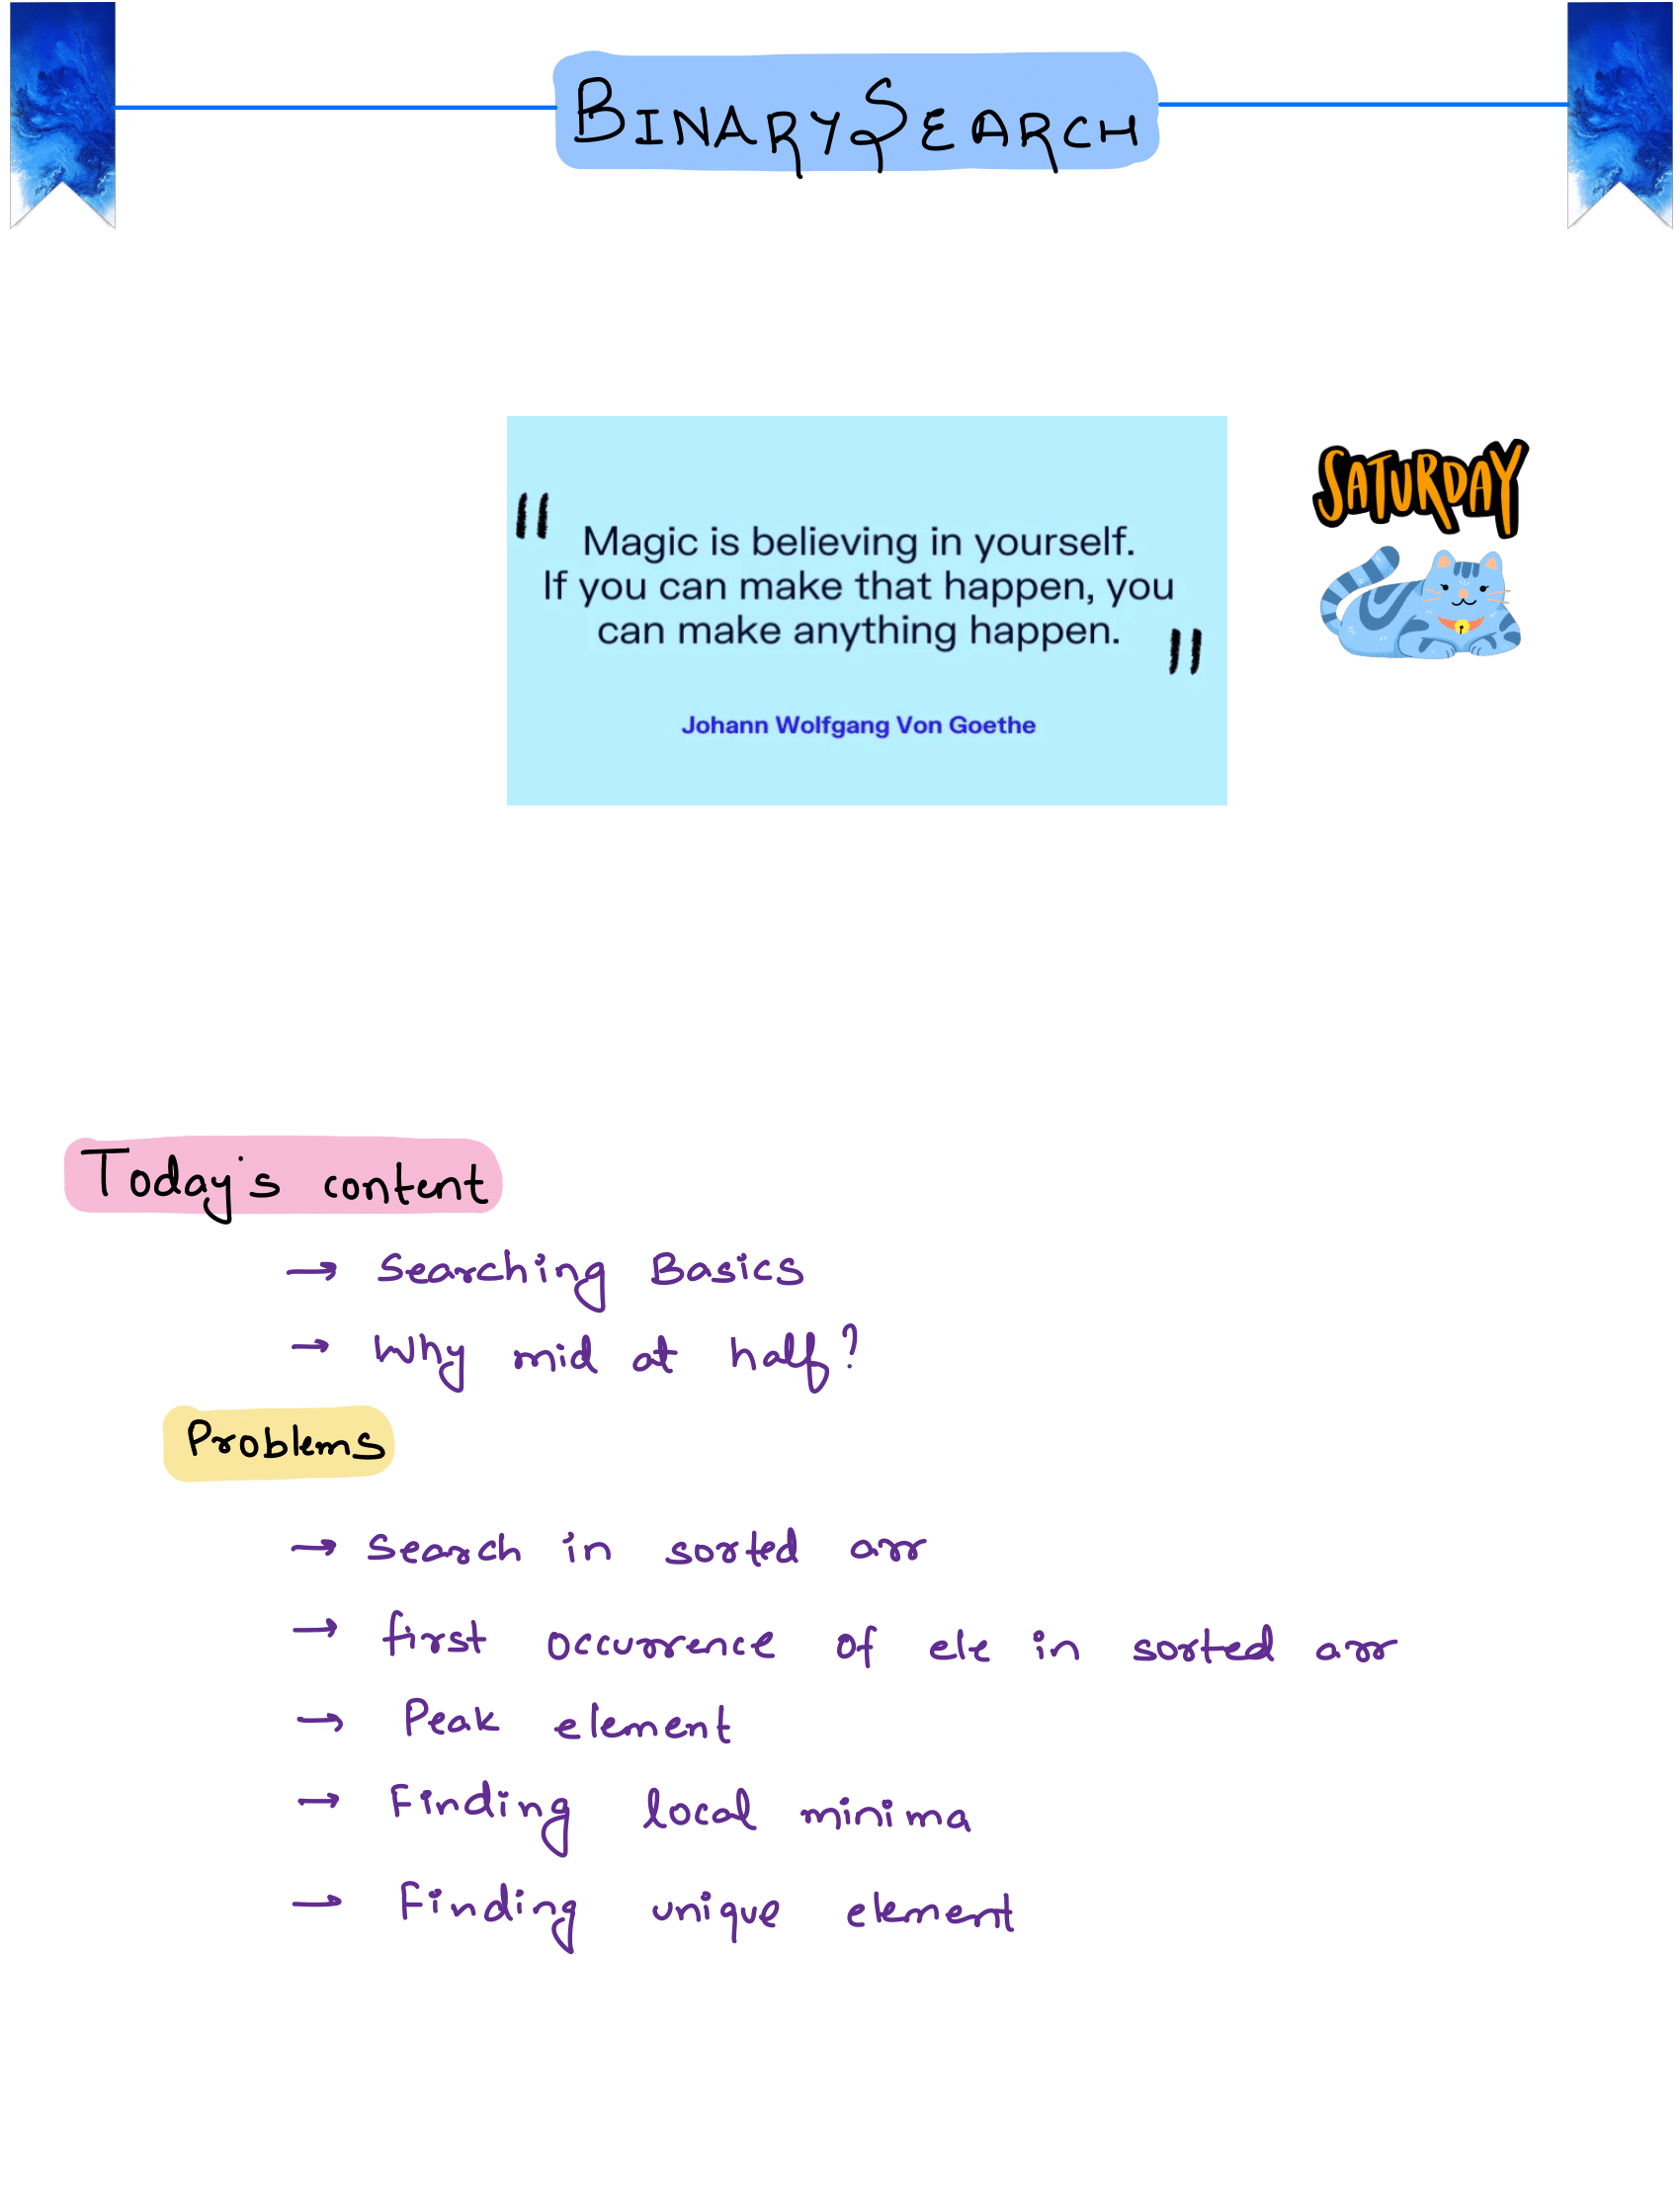 BINARY SEARCH
" Magic is believing in yourself.
If you can make that happen, you
can make anything happen. "
Johann Wolfgang Von Goethe
SATURDAY
Today's content
→ Searching Basics
→ Why mid at half?
Problems
→ Search in sorted arr
→ first occurrence of ele in sorted arr
→ Peak element
→ Finding local minima
→ Finding unique element